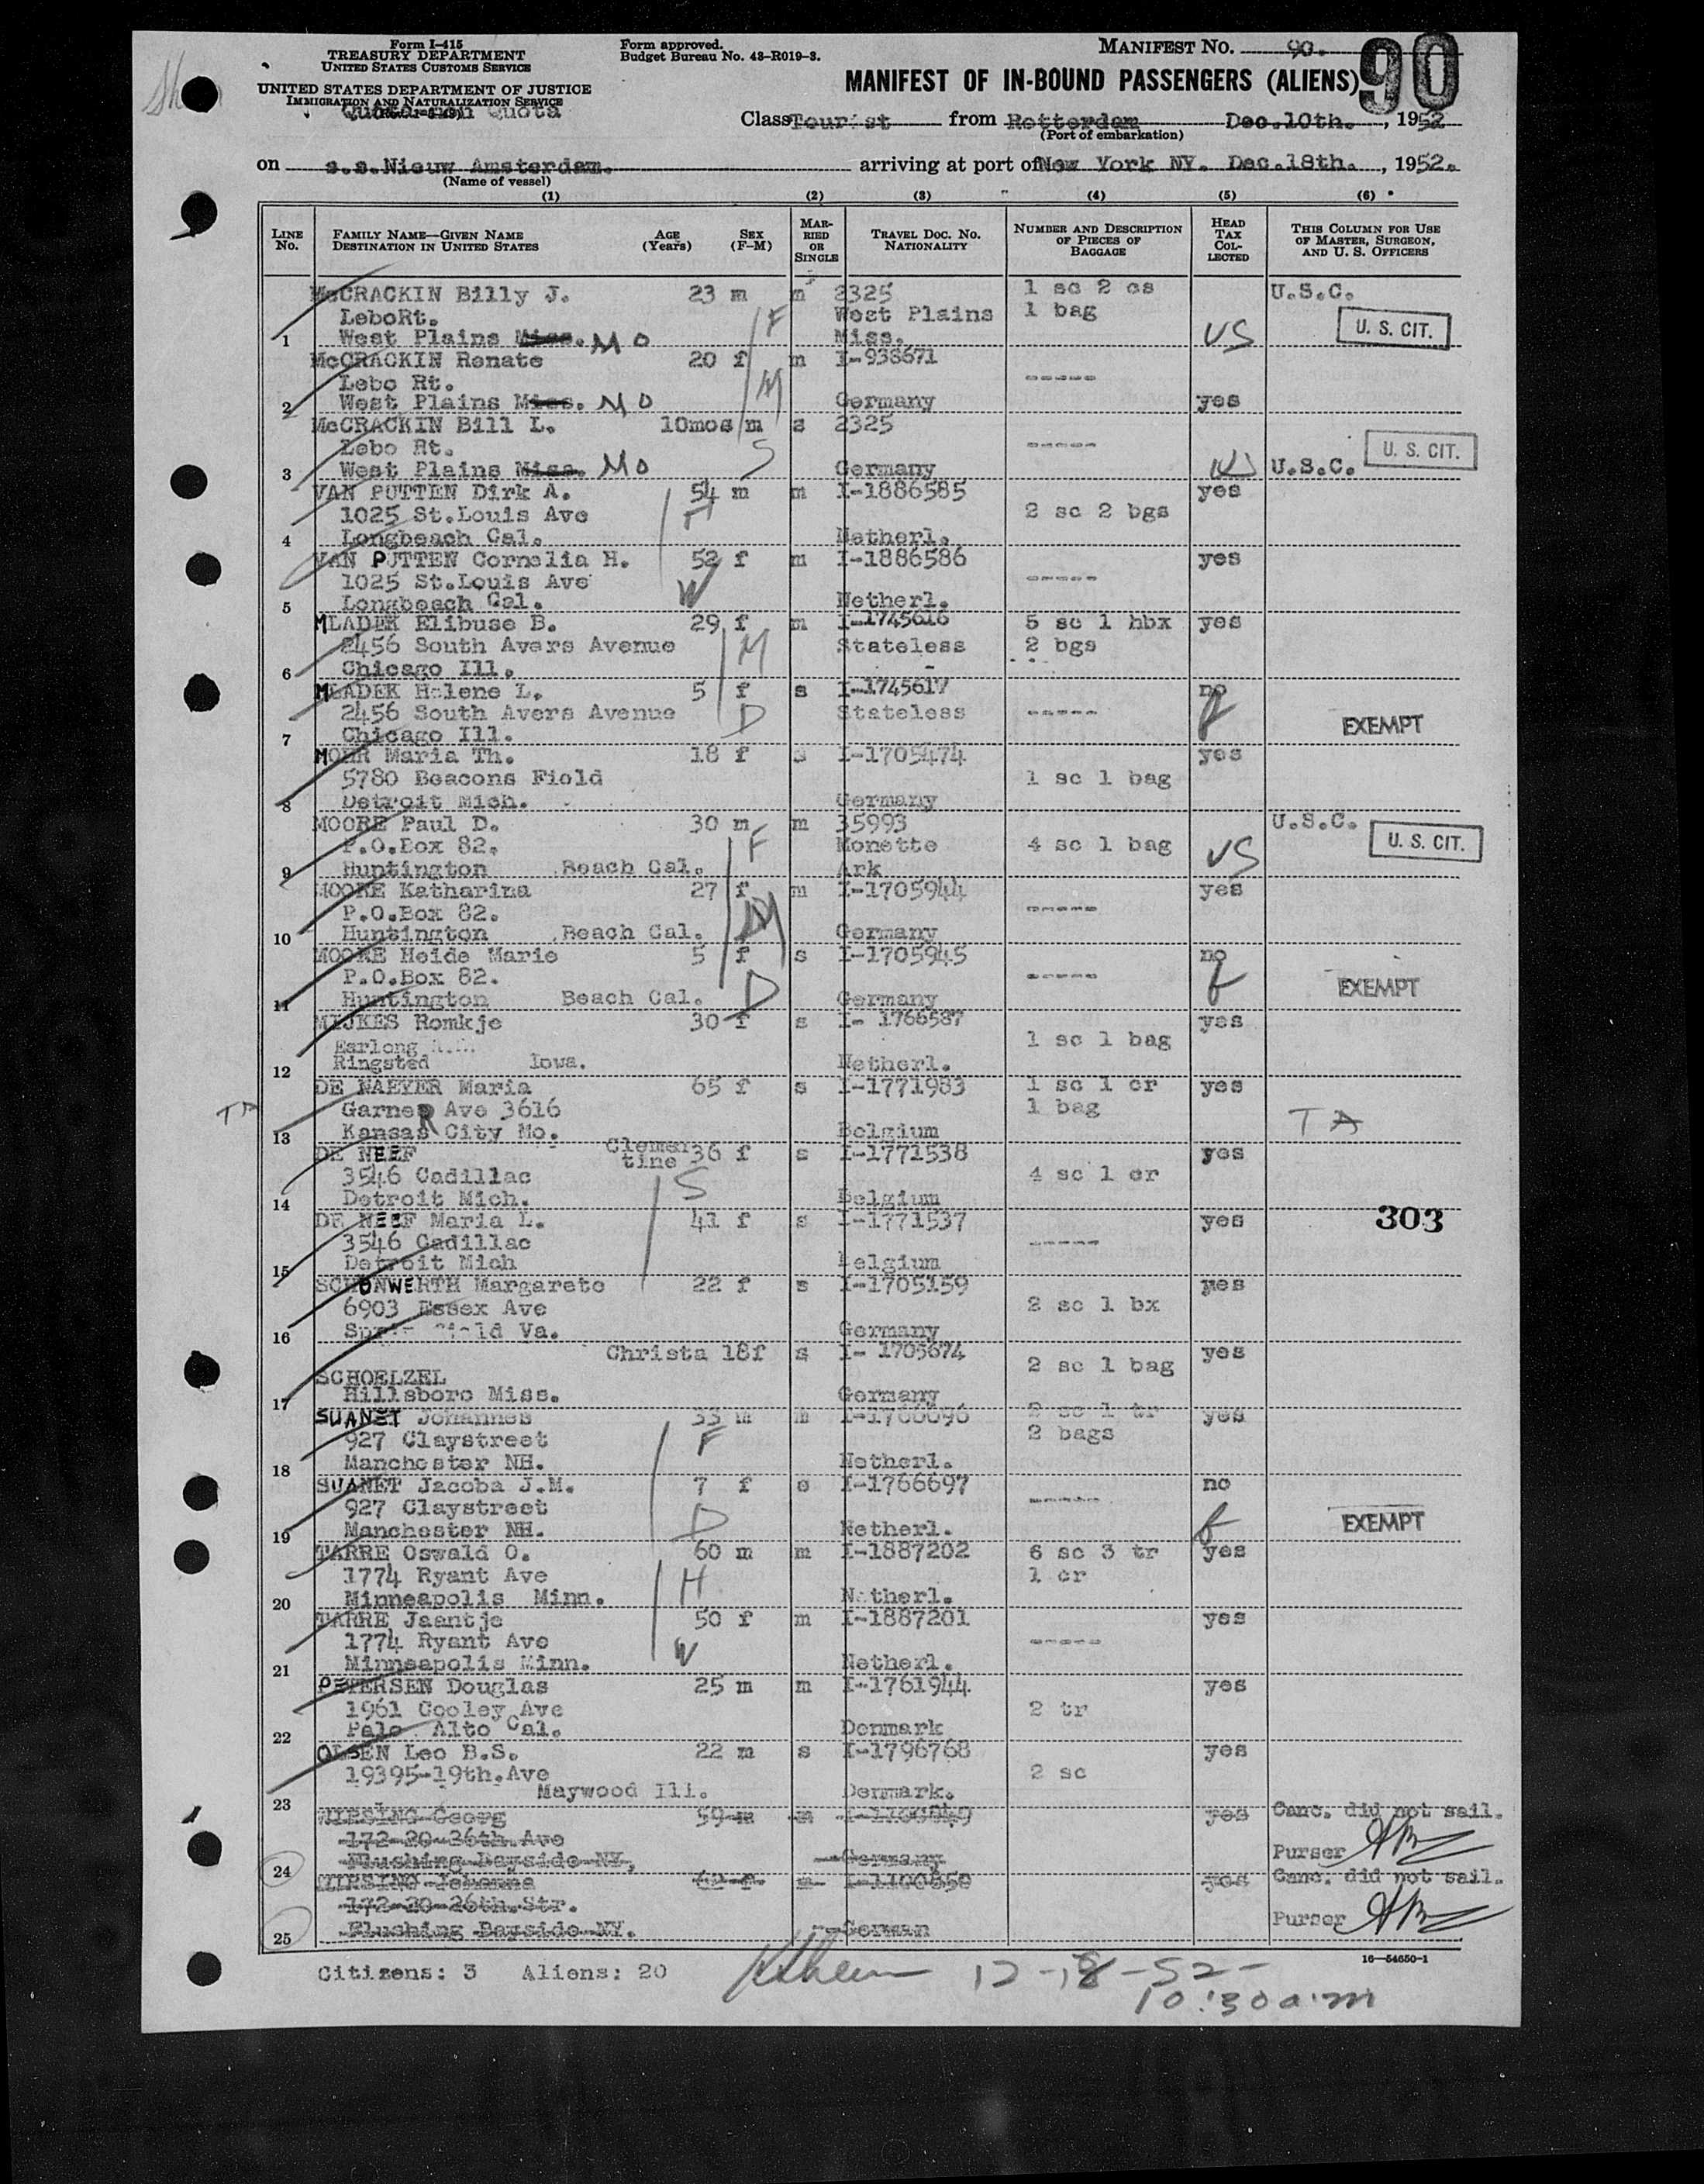 Form I-415
TREASURY DEPARTMENT
UNITED STATES CUSTOMS SERVICE
UNITED STATES DEPARTMENT OF JUSTICE
IMMIGRATION AND NATURALIZATION SERVICE
Quota Quota
Form approved.
Budget Bureau No. 43-R019-3.
MANIFEST NO. 90.
90
MANIFEST OF IN-BOUND PASSENGERS (ALIENS)
Class Tourist from Rotterdam Dec.10th., 1952
(Port of embarkation)
on s.s.Nieuw Amsterdam. arriving at port of New York NY. Dec.18th., 1952.
(Name of vessel)
(1) (2) (3) (4) (5) (6)
LINE No. FAMILY NAME—GIVEN NAME DESTINATION IN UNITED STATES AGE (Years) SEX (F-M) MARRIED OR SINGLE TRAVEL DOC. NO. NATIONALITY NUMBER AND DESCRIPTION OF PIECES OF BAGGAGE HEAD TAX COLLECTED THIS COLUMN FOR USE OF MASTER, SURGEON, AND U. S. OFFICERS
McCRACKIN Billy J. 23 m m 2325 1 sc 2 cs U.S.C.
LeboRt. F West Plains 1 bag
1 West Plains Miss. MO Miss. US U. S. CIT.
McCRACKIN Renate 20 f m I-938671
Lebo Rt. M -----
2 West Plains Miss. MO Germany yes
McCRACKIN Bill L. 10mos m s 2325
Lebo Rt. S ----- U. S. CIT.
3 West Plains Miss. MO Germany US U.S.C.
VAN PUTTEN Dirk A. 54 m m I-1886585 yes
1025 St.Louis Ave H 2 sc 2 bgs
4 Longbeach Cal. Netherl.
VAN PUTTEN Cornelia H. 52 f m I-1886586 yes
1025 St.Louis Ave W -----
5 Longbeach Cal. Netherl.
MLADEK Elibuse B. 29 f m I-1745616 5 sc 1 hbx yes
2456 South Avers Avenue M Stateless 2 bgs
6 Chicago Ill.
MLADEK Helene L. 5 f s I-1745617 no
2456 South Avers Avenue D Stateless ----- EXEMPT
7 Chicago Ill.
MOHR Maria Th. 18 f s I-1705474 yes
5780 Beacons Field 1 sc 1 bag
8 Detroit Mich. Germany
MOORE Paul D. 30 m m 35993 U.S.C.
P.O.Box 82. F Monette 4 sc 1 bag US U. S. CIT.
9 Huntington Beach Cal. Ark
MOORE Katharina 27 f m I-1705944 yes
P.O.Box 82. M -----
10 Huntington Beach Cal. Germany
MOORE Heide Marie 5 f s I-1705945 no
P.O.Box 82. ----- EXEMPT
11 Huntington Beach Cal. D Germany
MIJKES Romkje 30 f s I- 1766587 yes
Earlong 1 sc 1 bag
12 Ringsted Iowa. Netherl.
DE NAEYER Maria 65 f s I-1771983 1 sc 1 cr yes
TA Garner Ave 3616 1 bag TA
13 Kansas City Mo. Belgium
DE NEEF Clementine 36 f s I-1771538 yes
3546 Cadillac S 4 sc 1 cr
14 Detroit Mich. Belgium
DE NEEF Maria L. 41 f s I-1771537 yes 303
3546 Cadillac -----
15 Detroit Mich Belgium
SCHONWERTH Margarete 22 f s I-1705159 yes
6903 Essex Ave 2 sc 1 bx
16 Va. Germany
Christa 18f s I- 1705674 2 sc 1 bag yes
SCHOELZEL
17 Hillsboro Miss. Germany
SUANET Johannes 33 m m I-1766696 2 sc 1 tr yes
927 Claystreet F 2 bags
18 Manchester NH. Netherl.
SUANET Jacoba J.M. 7 f s I-1766697 no
927 Claystreet D ----- EXEMPT
19 Manchester NH. Netherl.
TARRE Oswald O. 60 m m I-1887202 6 sc 3 tr yes
1774 Ryant Ave H 1 cr
20 Minneapolis Minn. Netherl.
TARRE Jaantje 50 f m I-1887201 yes
1774 Ryant Ave W -----
21 Minneapolis Minn. Netherl.
PETERSEN Douglas 25 m m I-1761944 yes
1961 Cooley Ave 2 tr
22 Palo Alto Cal. Denmark
OLSEN Leo B.S. 22 m s I-1796768 yes
19395-19th.Ave 2 sc
23 Maywood Ill. Denmark.
WIRSING Georg 59 m m yes Canc. did not sail.
172-20-26th.Ave Purser
24 Flushing Bayside NY, Germany
WIRSING Johanna f m I-1100850 yes Canc. did not sail.
172-20-26th.Str. Purser
25 Flushing Bayside NY. German
16—54650-1
Citizens: 3 Aliens: 20 12-18-52-
10:30 a.m